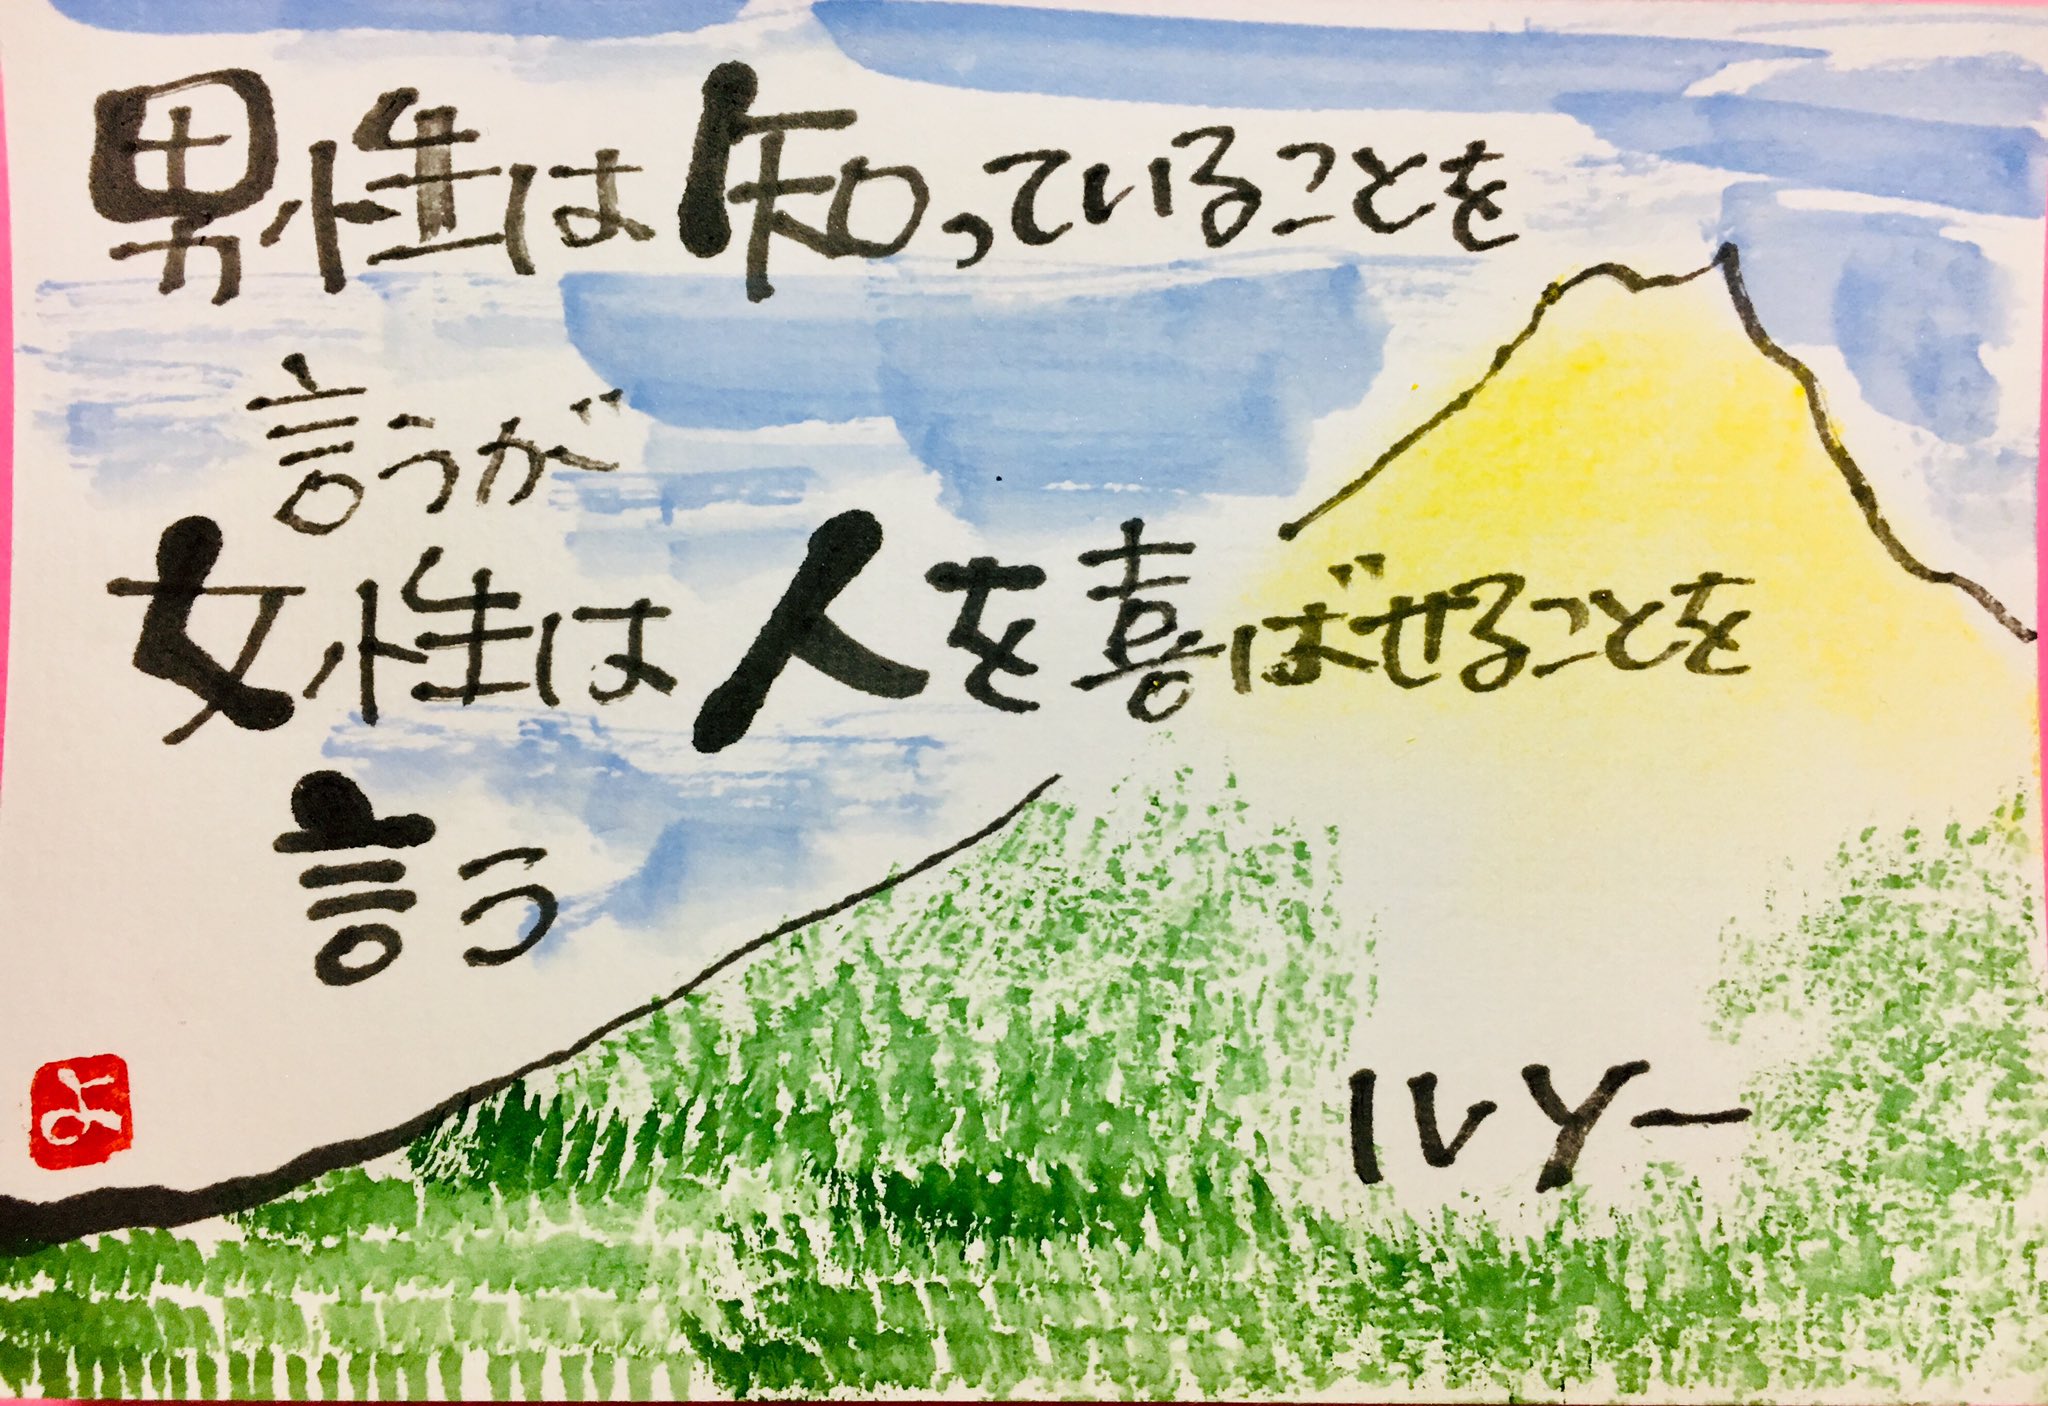 男性は知っていることを
言うが
女性は人を喜ばせることを
言う
ルソー
よ